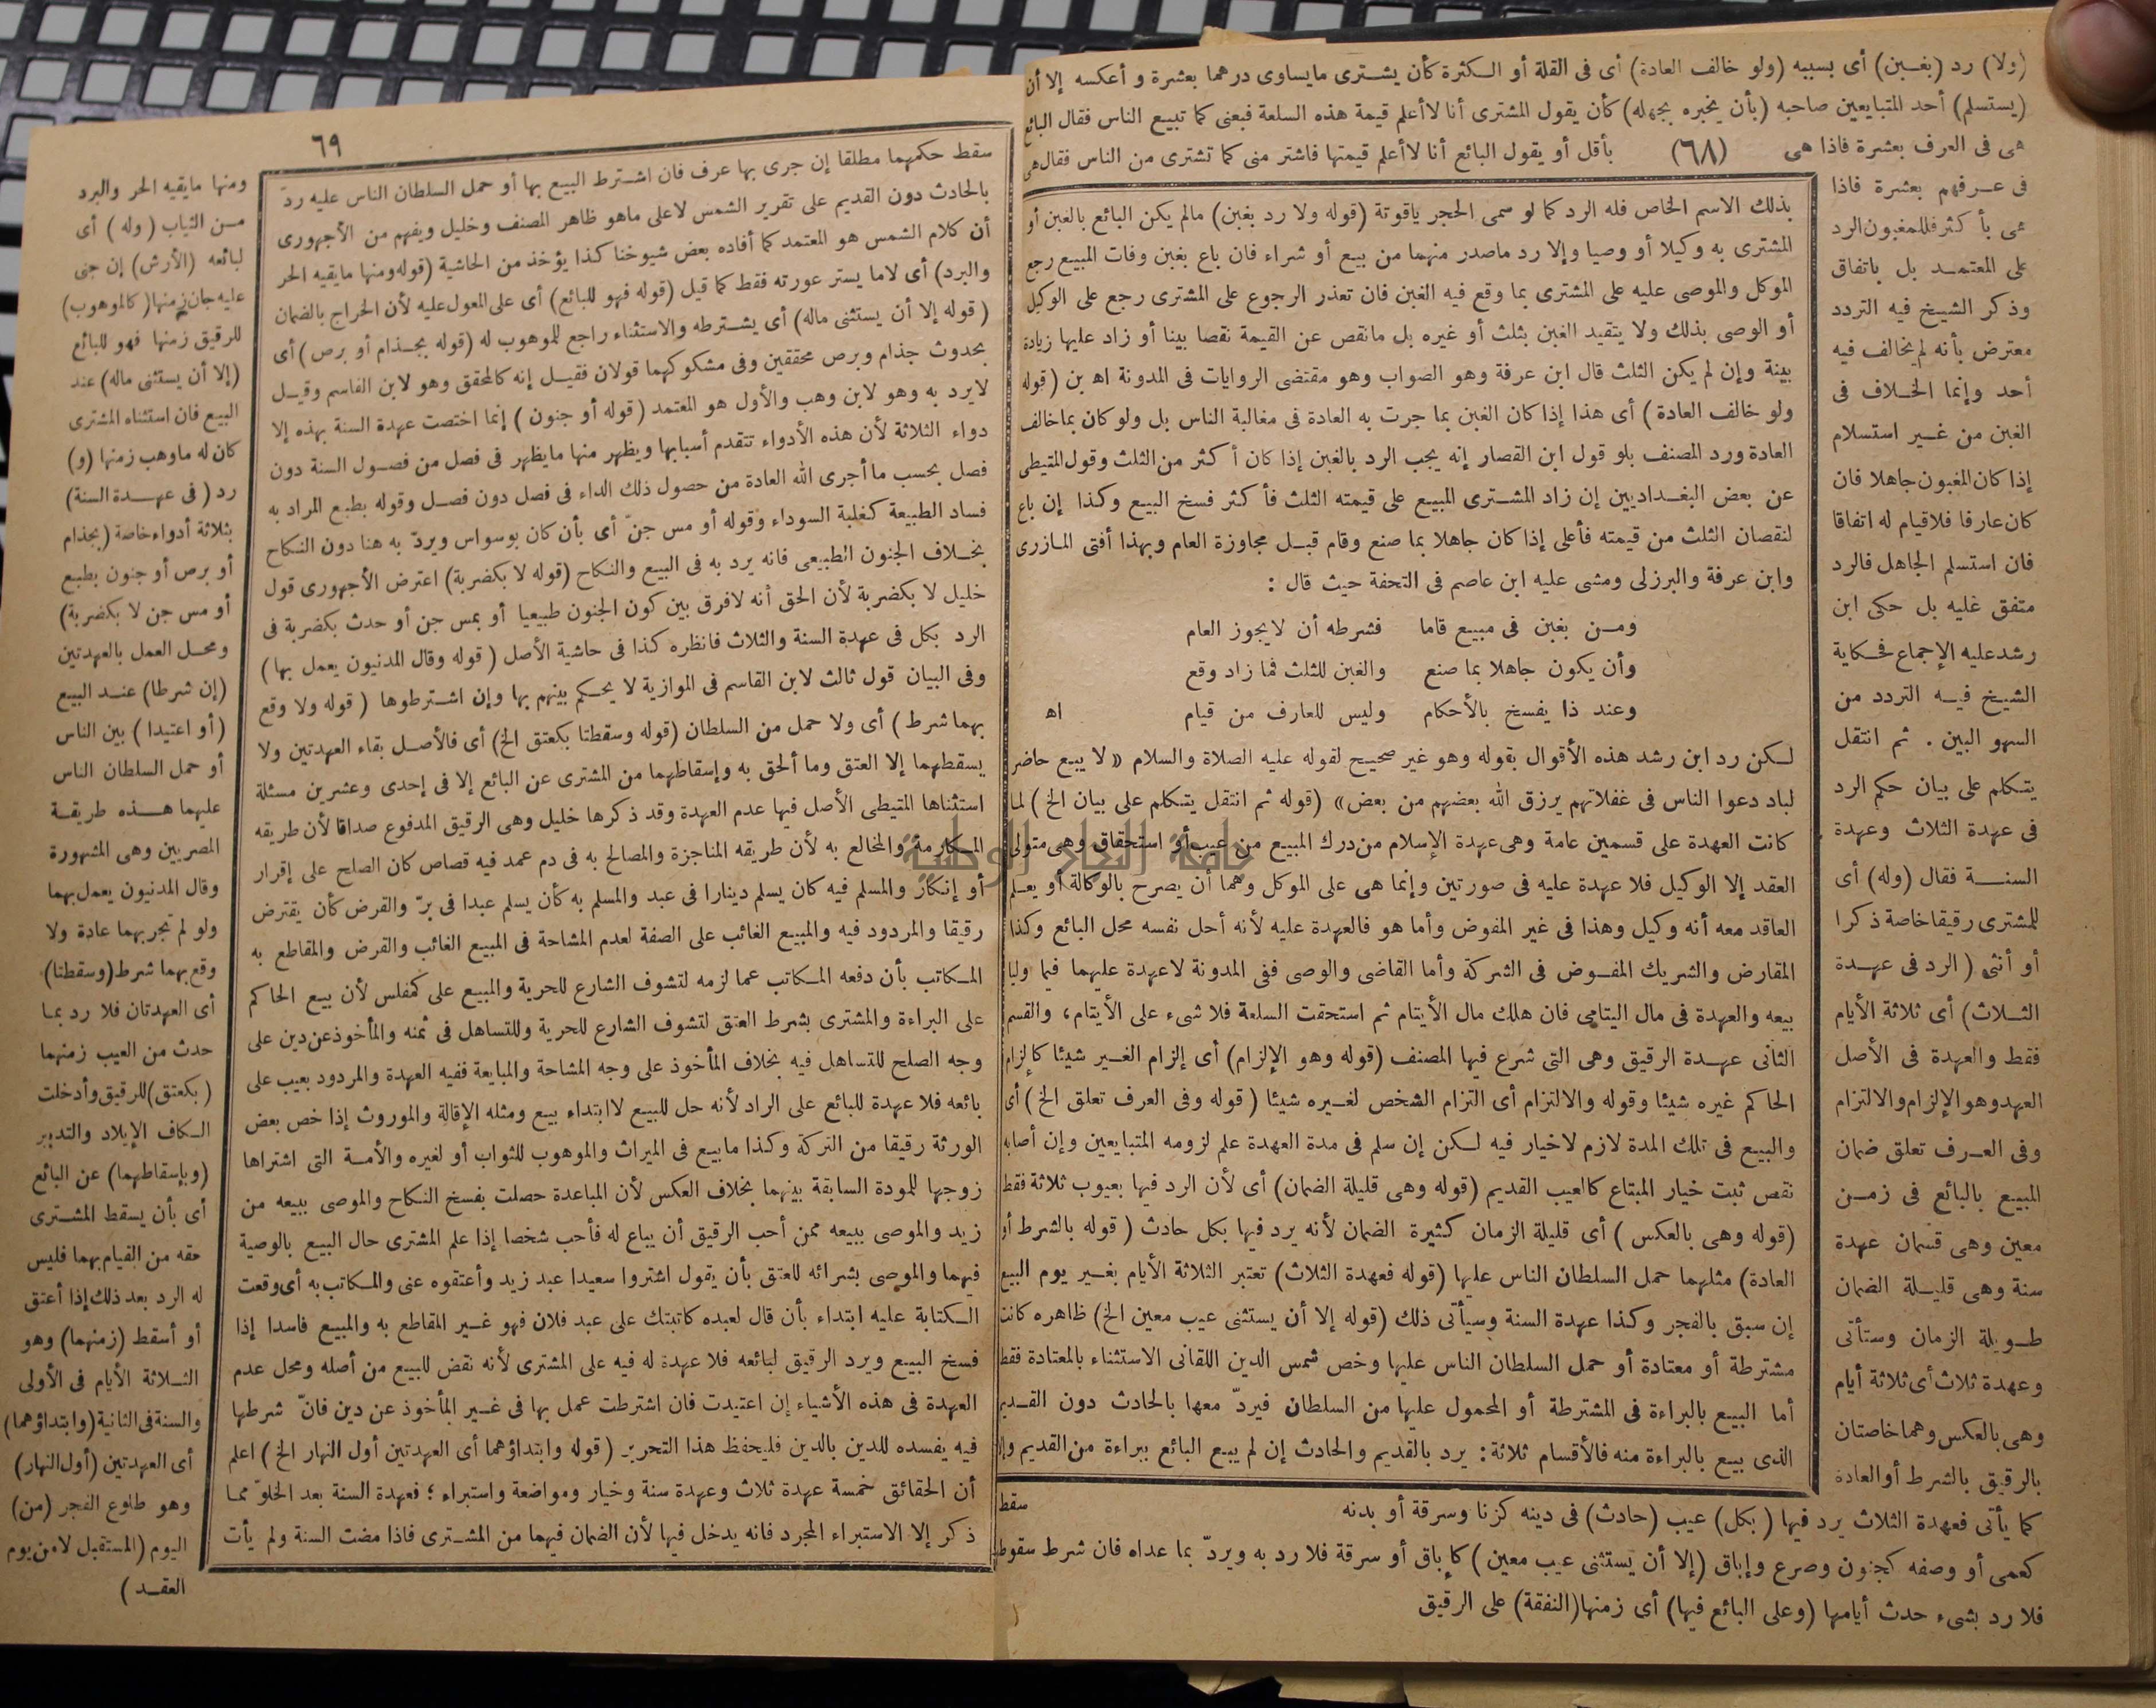 (ولا) رد (بغبن) أى بسببه (ولو خالف العادة) أى فى القلة أو الكثرة كأن يشترى مايساوى درهما بعشرة و أعكسه إلا أن
(يستسلم) أحد المتبايعين صاحبه (بأن يخبره بجهله) كأن يقول المشترى أنا لاأعلم قيمة هذه السلعة فبعنى كما تبيع الناس فقال البائع
هى فى العرف بعشرة فاذا هى (٦٨) بأقل أو يقول البائع أنا لاأعلم قيمتها فاشتر منى كما تشترى من الناس فقال هى
فى عرفهم بعشرة فاذا
هى بأكثر فللمغبون الرد
على المعتمد بل باتفاق
وذكر الشيخ فيه التردد
معترض بأنه لم يخالف فيه
أحد وإنما الخلاف فى
الغبن من غير استسلام
إذا كان المغبون جاهلا فان
كان عارفا فلاقيام له اتفاقا
فان استسلم الجاهل فالرد
متفق عليه بل حكى ابن
رشد عليه الإجماع فحكاية
الشيخ فيه التردد من
السهو البين . ثم انتقل
يتكلم على بيان حكم الرد
فى عهدة الثلاث وعهدة
السنة فقال (وله) أى
للمشترى رقيقا خاصة ذكرا
أو أنثى (الرد فى عهدة
الثلاث) أى ثلاثة الأيام
فقط والعهدة فى الأصل
العهد وهو الإلزام والالتزام
وفى العرف تعلق ضمان
المبيع بالبائع فى زمن
معين وهى قسمان عهدة
سنة وهى قليلة الضمان
طويلة الزمان وستأتى
وعهدة ثلاث أى ثلاثة أيام
وهى بالعكس وهما خاصتان
بالرقيق بالشرط أو العادة
كما يأتى فعهدة الثلاث يرد فيها (بكل) عيب (حادث) فى دينه كزنا وسرقة أو بدنه
كعمى أو وصفه كجنون وصرع وإباق (إلا أن يستثنى عيب معين) كإباق أو سرقة فلا رد به ويردّ بما عداه فان شرط سقوط
فلا رد بشىء حدث أيامها (وعلى البائع فيها) أى زمنها (النفقة) على الرقيق
بذلك الاسم الخاص فله الرد كما لو سمى الحجر ياقوتة (قوله ولا رد بغبن) مالم يكن البائع بالغبن أو
المشترى به وكيلا أو وصيا وإلا رد ماصدر منهما من بيع أو شراء فان باع بغبن وفات المبيع رجع
الموكل والموصى عليه على المشترى بما وقع فيه الغبن فان تعذر الرجوع على المشترى رجع على الوكيل
أو الوصى بذلك ولا يتقيد الغبن بثلث أو غيره بل مانقص عن القيمة نقصا بينا أو زاد عليها زيادة
بينة وإن لم يكن الثلث قال ابن عرفة وهو الصواب وهو مقتضى الروايات فى المدونة اه بن (قوله
ولو خالف العادة) أى هذا إذا كان الغبن بما جرت به العادة فى مغالبة الناس بل ولو كان بما خالف
العادة ورد المصنف بلو قول ابن القصار إنه يجب الرد بالغبن إذا كان أكثر من الثلث وقول المتيطى
عن بعض البغداديين إن زاد المشترى المبيع على قيمته الثلث فأكثر فسخ البيع وكذا إن باع
لنقصان الثلث من قيمته فأعلى إذا كان جاهلا بما صنع وقام قبل مجاوزة العام وبهذا أفتى المازرى
وابن عرفة والبرزلى ومشى عليه ابن عاصم فى التحفة حيث قال :
ومن بغبن فى مبيع قاما فشرطه أن لايجوز العام
وأن يكون جاهلا بما صنع والغبن للثلث فما زاد وقع
وعند ذا يفسخ بالأحكام وليس للعارف من قيام اه
لكن رد ابن رشد هذه الأقوال بقوله وهو غير صحيح لقوله عليه الصلاة والسلام « لا يبع حاضر
لباد دعوا الناس فى غفلاتهم يرزق الله بعضهم من بعض» (قوله ثم انتقل يتكلم على بيان الخ) لما
كانت العهدة على قسمين عامة وهى عهدة الإسلام من درك المبيع من عيب أو استحقاق وهى متولى
العقد إلا الوكيل فلا عهدة عليه فى صورتين وإنما هى على الموكل وهما أن يصرح بالوكالة أو يعلم
العاقد معه أنه وكيل وهذا فى غير المفوض وأما هو فالعهدة عليه لأنه أحل نفسه محل البائع وكذا
المقارض والشريك المفوض فى الشركة وأما القاضى والوصى ففى المدونة لاعهدة عليهما فيما وليا
بيعه والعهدة فى مال اليتامى فان هلك مال الأيتام ثم استحقت السلعة فلا شىء على الأيتام، والقسم
الثانى عهدة الرقيق وهى التى شرع فيها المصنف (قوله وهو الإلزام) أى إلزام الغير شيئا كإلزام
الحاكم غيره شيئا وقوله والالتزام أى التزام الشخص لغيره شيئا (قوله وفى العرف تعلق الخ) أى
والبيع فى تلك المدة لازم لاخيار فيه لكن إن سلم فى مدة العهدة علم لزومه المتبايعين وإن أصابه
نقص ثبت خيار المبتاع كالعيب القديم (قوله وهى قليلة الضمان) أى لأن الرد فيها بعيوب ثلاثة فقط
(قوله وهى بالعكس) أى قليلة الزمان كثيرة الضمان لأنه يرد فيها بكل حادث (قوله بالشرط أو
العادة) مثلهما حمل السلطان الناس عليها (قوله فعهدة الثلاث) تعتبر الثلاثة الأيام بغير يوم البيع
إن سبق بالفجر وكذا عهدة السنة وسيأتى ذلك (قوله إلا أن يستثنى عيب معين الخ) ظاهره كانت
مشترطة أو معتادة أو حمل السلطان الناس عليها وخص شمس الدين اللقانى الاستثناء بالمعتادة فقط
أما البيع بالبراءة فى المشترطة أو المحمول عليها من السلطان فيردّ معها بالحادث دون القديم
الذى بيع بالبراءة منه فالأقسام ثلاثة: يرد بالقديم والحادث إن لم يبع البائع ببراءة من القديم وإلا
سقط
٦٩
سقط حكمهما مطلقا إن جرى بها عرف فان اشترط البيع بها أو حمل السلطان الناس عليه ردّ
بالحادث دون القديم على تقرير الشمس لاعلى ماهو ظاهر المصنف وخليل ويفهم من الأجهورى
أن كلام الشمس هو المعتمد كما أفاده بعض شيوخنا كذا يؤخذ من الحاشية (قوله ومنها مايقيه الحر
والبرد) أى لاما يستر عورته فقط كما قيل (قوله فهو للبائع) أى على المعول عليه لأن الخراج بالضمان
(قوله إلا أن يستثنى ماله) أى يشترطه والاستثناء راجع للموهوب له (قوله بجذام أو برص) أى
بحدوث جذام وبرص محققين وفى مشكوكهما قولان فقيل إنه كالمحقق وهو لابن القاسم وقيل
لايرد به وهو لابن وهب والأول هو المعتمد (قوله أو جنون) إنما اختصت عهدة السنة بهذه إلا
دواء الثلاثة لأن هذه الأدواء تتقدم أسبابها ويظهر منها مايظهر فى فصل من فصول السنة دون
فصل بحسب ما أجرى الله العادة من حصول ذلك الداء فى فصل دون فصل وقوله بطبع المراد به
فساد الطبيعة كغلبة السوداء وقوله أو مس جنّ أى بأن كان بوسواس ويردّ به هنا دون النكاح
بخلاف الجنون الطبيعى فانه يرد به فى البيع والنكاح (قوله لا بكضربة) اعترض الأجهورى قول
خليل لا بكضربة لأن الحق أنه لافرق بين كون الجنون طبيعيا أو بمس جن أو حدث بكضربة فى
الرد بكل فى عهدة السنة والثلاث فانظره كذا فى حاشية الأصل (قوله وقال المدنيون يعمل بها)
وفى البيان قول ثالث لابن القاسم فى الموازية لا يحكم بينهم بها وإن اشترطوها (قوله ولا وقع
بهما شرط) أى ولا حمل من السلطان (قوله وسقطتا بكعتق الخ) أى فالأصل بقاء العهدتين ولا
يسقطهما إلا العتق وما ألحق به وإسقاطهما من المشترى عن البائع إلا فى إحدى وعشرين مسئلة
استثناها المتيطى الأصل فيها عدم العهدة وقد ذكرها خليل وهى الرقيق المدفوع صداقا لأن طريقه
المكارمة والمخالع به لأن طريقه المناجزة والمصالح به فى دم عمد فيه قصاص كان الصلح على إقرار
أو إنكار والمسلم فيه كان يسلم دينارا فى عبد والمسلم به كأن يسلم عبدا فى برّ والقرض كأن يقترض
رقيقا والمردود فيه والمبيع الغائب على الصفة لعدم المشاحة فى المبيع الغائب والقرض والمقاطع به
المكاتب بأن دفعه المكاتب عما لزمه لتشوف الشارع للحرية والمبيع على كمفلس لأن بيع الحاكم
على البراءة والمشترى بشرط العتق لتشوف الشارع للحرية وللتساهل فى ثمنه والمأخوذ عن دين على
وجه الصلح للتساهل فيه بخلاف المأخوذ على وجه المشاحة والمبايعة ففيه العهدة والمردود بعيب على
بائعه فلا عهدة للبائع على الراد لأنه حل للبيع لا ابتداء بيع ومثله الإقالة والموروث إذا خص بعض
الورثة رقيقا من التركة وكذا مابيع فى الميراث والموهوب للثواب أو لغيره والأمة التى اشتراها
زوجها للمودة السابقة بينهما بخلاف العكس لأن المباعدة حصلت بفسخ النكاح والموصى ببيعه من
زيد والموصى ببيعه ممن أحب الرقيق أن يباع له فأحب شخصا إذا علم المشترى حال البيع بالوصية
فيهما والموصى بشرائه للعتق بأن يقول اشتروا سعيدا عبد زيد وأعتقوه عنى والمكاتب به أى وقعت
الكتابة عليه ابتداء بأن قال لعبده كاتبتك على عبد فلان فهو غير المقاطع به والمبيع فاسدا إذا
فسخ البيع ويرد الرقيق لبائعه فلا عهدة له فيه على المشترى لأنه نقض للبيع من أصله ومحل عدم
العهدة فى هذه الأشياء إن اعتيدت فان اشترطت عمل بها فى غير المأخوذ عن دين فانّ شرطها
فيه يفسده للدين بالدين فليحفظ هذا التحرير (قوله وابتداؤهما أى العهدتين أول النهار الخ) اعلم
أن الحقائق خمسة عهدة ثلاث وعهدة سنة وخيار ومواضعة واستبراء ؛ فعهدة السنة بعد الخلوّ مما
ذكر إلا الاستبراء المجرد فانه يدخل فيها لأن الضمان فيهما من المشترى فاذا مضت السنة ولم يأت
ومنها مايقيه الحر والبرد
من الثياب (وله) أى
لبائعه (الأرش) إن جنى
عليه جان زمنها (كالموهوب)
للرقيق زمنها فهو للبائع
(إلا أن يستثنى ماله) عند
البيع فان استثناه المشترى
كان له ماوهب زمنها (و)
رد (فى عهدة السنة)
بثلاثة أدواء خاصة (بجذام
أو برص أو جنون بطبع
أو مس جن لا بكضربة)
ومحل العمل بالعهدتين
(إن شرطا) عند البيع
(أو اعتيدا) بين الناس
أو حمل السلطان الناس
عليهما هذه طريقة
المصريين وهى المشهورة
وقال المدنيون يعمل بهما
ولو لم تجر بهما عادة ولا
وقع بهما شرط (وسقطتا)
أى العهدتان فلا رد بما
حدث من العيب زمنهما
(بكعتق) للرقيق وأدخلت
الكاف الإيلاد والتدبير
(وبإسقاطهما) عن البائع
أى بأن يسقط المشترى
حقه من القيام بهما فليس
له الرد بعد ذلك إذا أعتق
أو أسقط (زمنهما) وهو
الثلاثة الأيام فى الأولى
والسنة فى الثانية (وابتداؤهما)
أى العهدتين (أول النهار)
وهو طلوع الفجر (من)
اليوم (المستقبل لا من يوم
العقد)